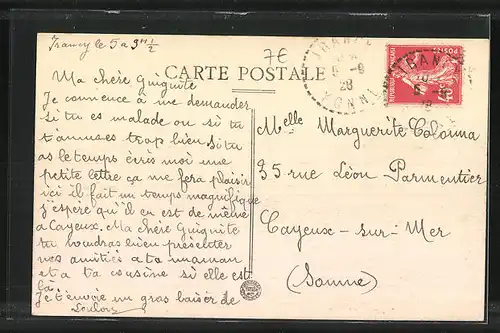 Trancy le 5 a 9 H 1/2
7€
CARTE POSTALE
TRANCY
5 - 8
28
YONNE
POSTES
40c
Ma chère Guiguite
Je commence a me demander
si tu es malade ou si tu
t'amuses trop bien, si tu
as le temps écris moi une
petite lettre ça me fera plaisir
ici il fait un temps magnifique
j'espère qu'il en est de même
a Cayeux. Ma chère Guiguite
tu voudras bien présenter
nos amitiés a ta maman
et a ta cousine si elle est
là
Je t'envoie un gros baiser de
Loulou
Melle Marguerite Colonna
35 rue Léon Parmentier
Cayeux-sur-Mer
(Somme)